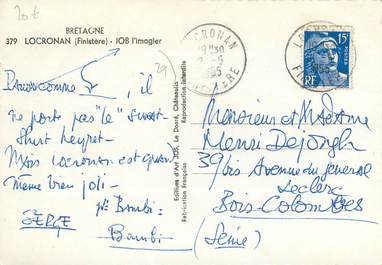 20 €
BRETAGNE
379 LOCRONAN (Finistère) - JOB l'imagier
29
comme, il
ne porte pas "le" sweat-
Shirt Heyret-
Mais Locronan est quand
même bien joli -
Bambi :
SERGE
Bambi
Editions d'Art JOS, Le Doaré, Châteaulin
Fabrication Française
Reproduction interdite
LOCRONAN
19 30
FINISTERE
POSTES
15F
RF
Monsieur et Madame
Henri Dejongh
39 bis Avenue du General
Leclerc
Bois-Colombes
(Seine)